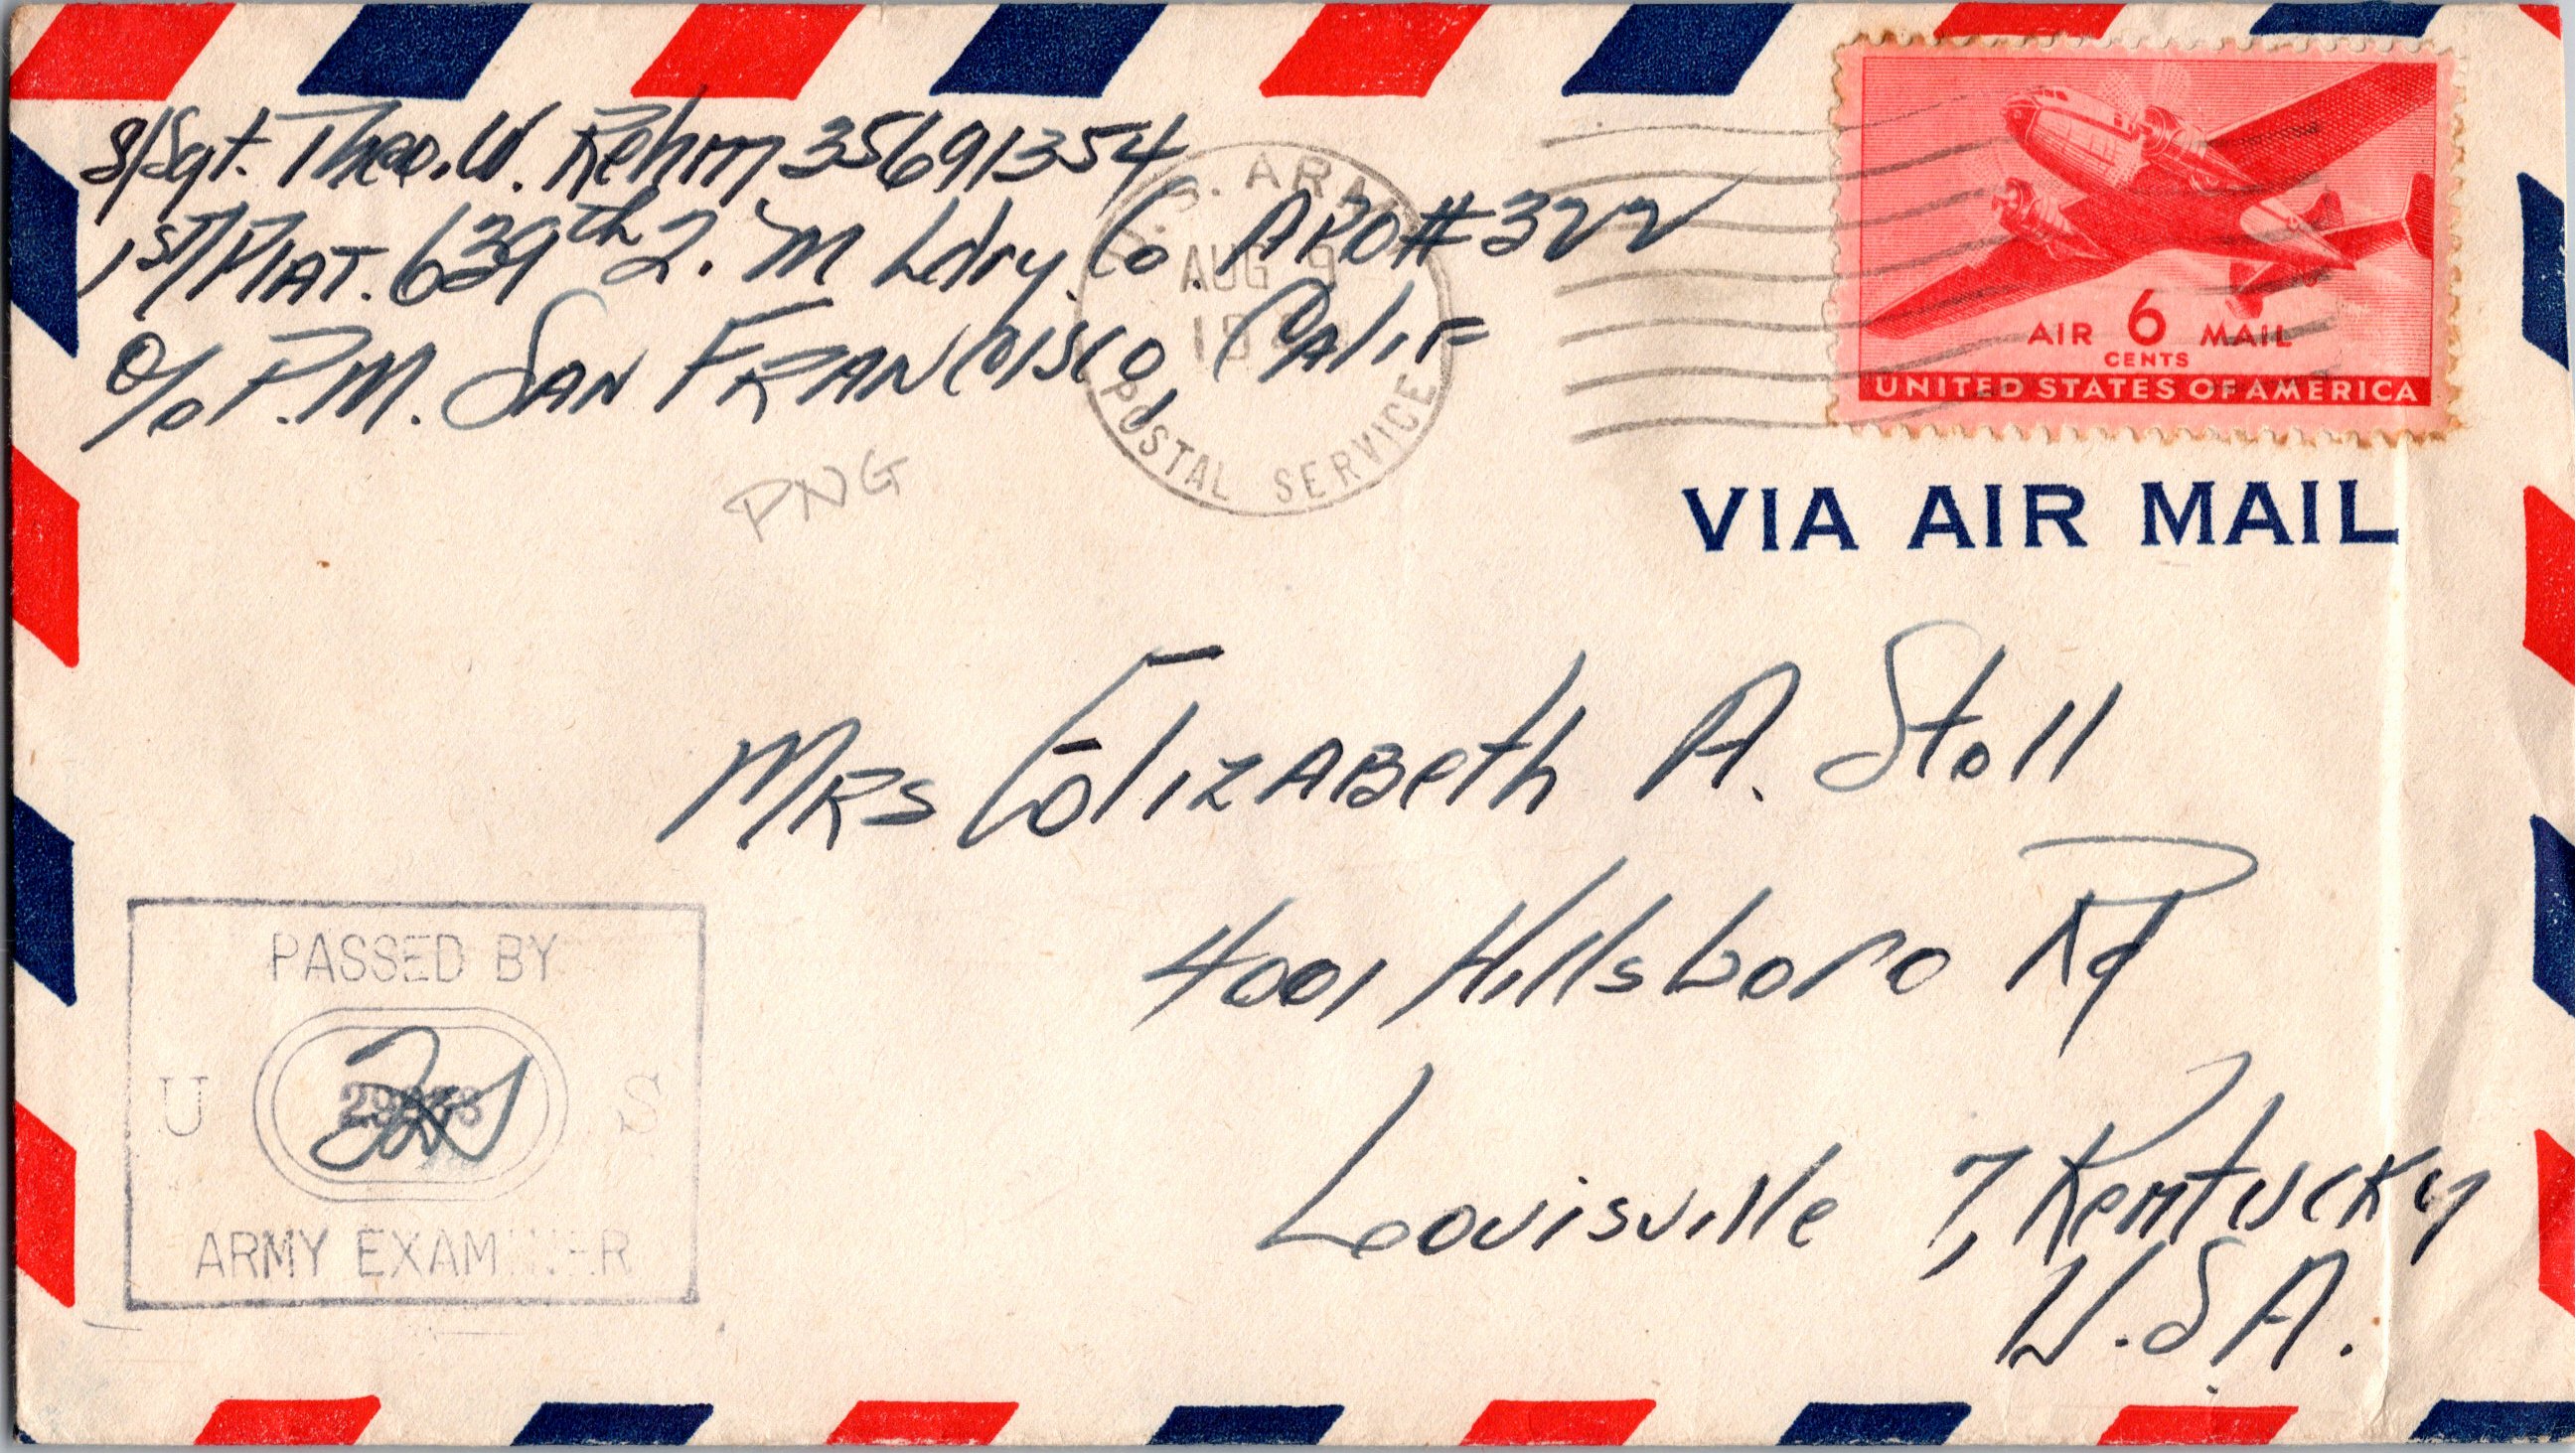 S/Sgt. Theo. W. Rehm 35691354
1st Plat. 639th Q. M Ldry. Co APO #322
c/o P.M. San Francisco, Calif
PNG
U.S. ARMY
AUG 9
POSTAL SERVICE
AIR 6 MAIL
CENTS
UNITED STATES OF AMERICA
VIA AIR MAIL
Mrs Elizabeth A. Stoll
4001 Hillsboro Rd
Louisville 7, Kentucky
U.S.A.
PASSED BY
U S
ARMY EXAMINER